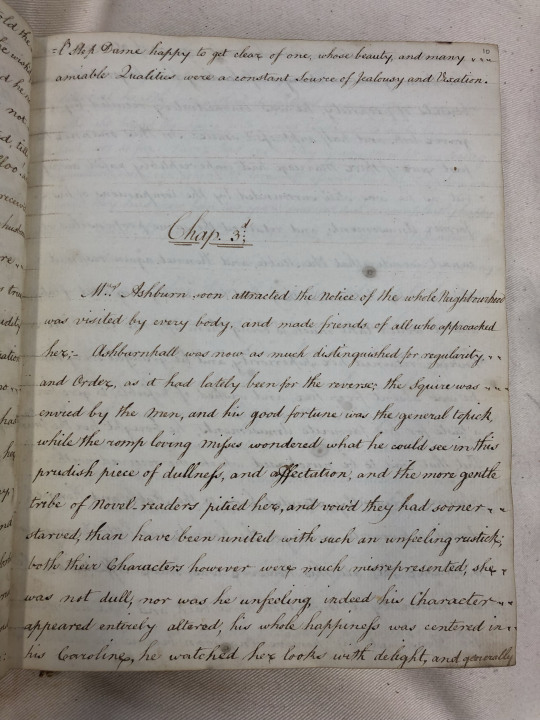 10
=l'Step Dame happy to get clear of one, whose beauty, and many
amiable Qualities were a constant Source of Jealousy and Vexation.
Chap. 3.d
Mrs. Ashburn soon attracted the Notice of the whole Neighbourhood
was visited by every body, and made friends of all who approached
her;- Ashburnhall was now as much distinguished for regularity
and Order, as it had lately been for the reverse; the Squire was
envied by the Men, and his good fortune was the general topick,
while the romp loving misses wondered what he could see in this
prudish piece of dullness, and affectation; and the more gentle
tribe of Novel-readers pitied her, and vow'd they had sooner
starved, than have been united with such an unfeeling rustick;
both their Characters however were much misrepresented, she
was not dull, nor was he unfeeling, indeed his Character
appeared entirely altered, his whole happiness was centered in
his Caroline, he watched her looks with delight, and generally